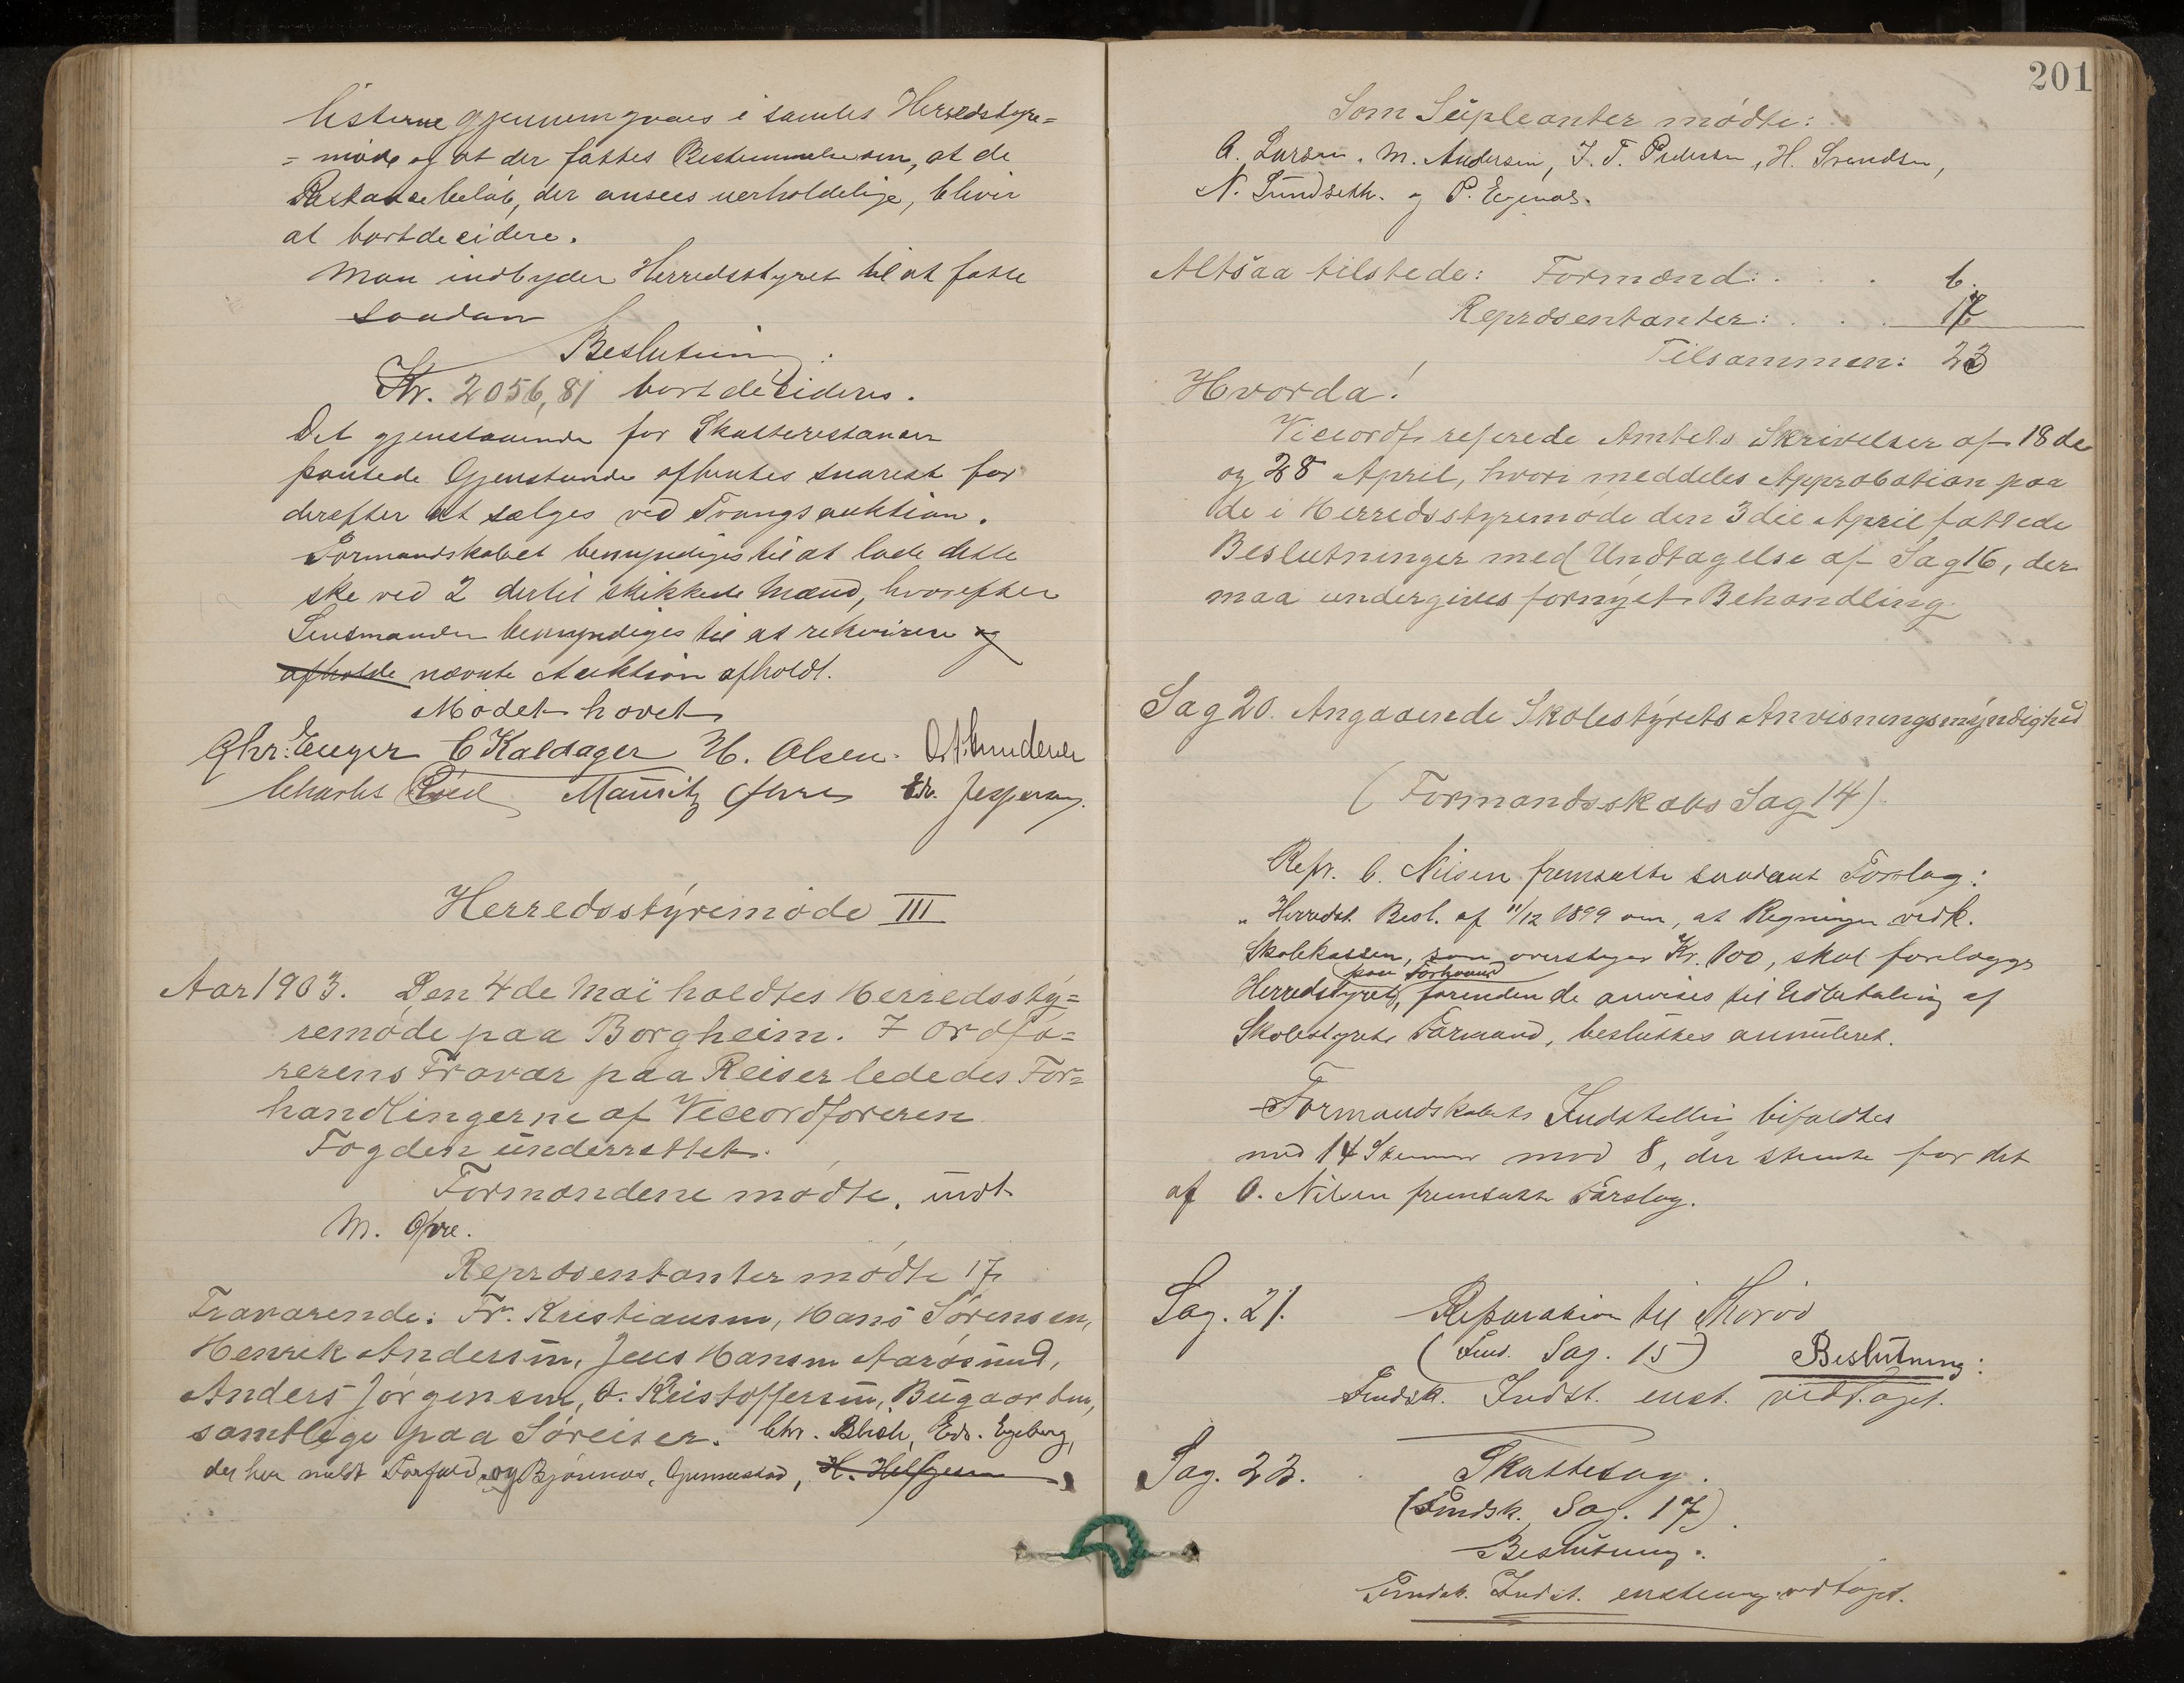 listerne gjennemgaaes i samles Herredstyre=
= møde og at der fattes Bestemmelse om, at de
Restancebeløb, der ansees uerholdelige, bliver
at bortdecidere.
Man indbyder Herredsstyret til at fatte
saadan
Beslutning:
Kr. 2056,81 bortdecideres.
Det gjenstaaende for Skatterestancer
pantede Gjenstande afhentes snarest for
derefter at sælges ved Tvangsauktion.
Formandskabet bemyndiges til at lade dette
ske ved 2 dertil skikkede Mænd, hvorefter
Lensmanden bemyndiges til at rekvirere og
afholde nævnte Auktion afholdt.
Mødet hævet
Chr: Enger C Kaldager H. Olsen. O. A. Amundsen
Charles Mauritz Øvre Edv. Jespersen.
Herredsstyremøde III
Aar 1903. Den 4de Mai holdtes Herredssty=
remøde paa Borgheim. I Ordfø=
rerens Fravær paa Reiser lededes For=
handlingerne af Viceordføreren
Fogden underrettet.
Formændene mødte. undt
M. Øvre.
Repræsentanter mødte 17
Fraværende: Fr. Kristiansen, Hans Sørensen,
Henrik Andersen, Jens Hansen Aarøsund,
Anders Jørgensen, O. Kristoffersen, Bugaarden,
samtlige paa Søreiser. Chr. Blich, Edv. Egeberg,
der har meldt Forfald, og Bjønnes, Gunnestad, H. Helgesen
201
Som Supleanter mødte:
A. Larsen, M. Andersen, J. T. Pedersen, H. Svendsen,
N. Lundseth. og P. Eegenæs.
Altsaa tilstede: Formænd: . . . 6.
Repræsentanter: . . . 17
Tilsammen: 23
Hvorda!
Viceordf. referede Amtets Skrivelser af 18de
og 28 April, hvori meddeles Approbation paa
de i Herredsstyremøde den 3die April fattede
Beslutninger med Undtagelse af Sag 16, der
maa undergives fornyet Behandling
Sag 20. Angaaende Skolestyrets Anvisningsmyndighed
(Formandsskabs Sag 14).
Repr. O. Nilsen fremsatte saadant Forslag:
"Herredst. Besl. af 11/12 1899 om, at Regninger vedk.
Skolekassen, som overstiger Kr. 100, skal forelægges
paa Forhaand
Herredstyret, forinden de anvises til Udbetaling af
Skolestyrets Formand, besluttes annuleret.
Formandskabets Indstilling bifaldtes
med 14 Stemmer mod 8, der stemte for det
af O. Nilsen fremsatte Forslag.
Sag. 21. Reparation til
(Fmd. Sag. 15) Beslutning:
Fmdsk. Indst. enst. vedtaget.
Sag. 22. Skattesag.
(Fmdsk. Sag. 17).
Beslutning:
Fmdsk. Indst. enstemmig vedtaget.